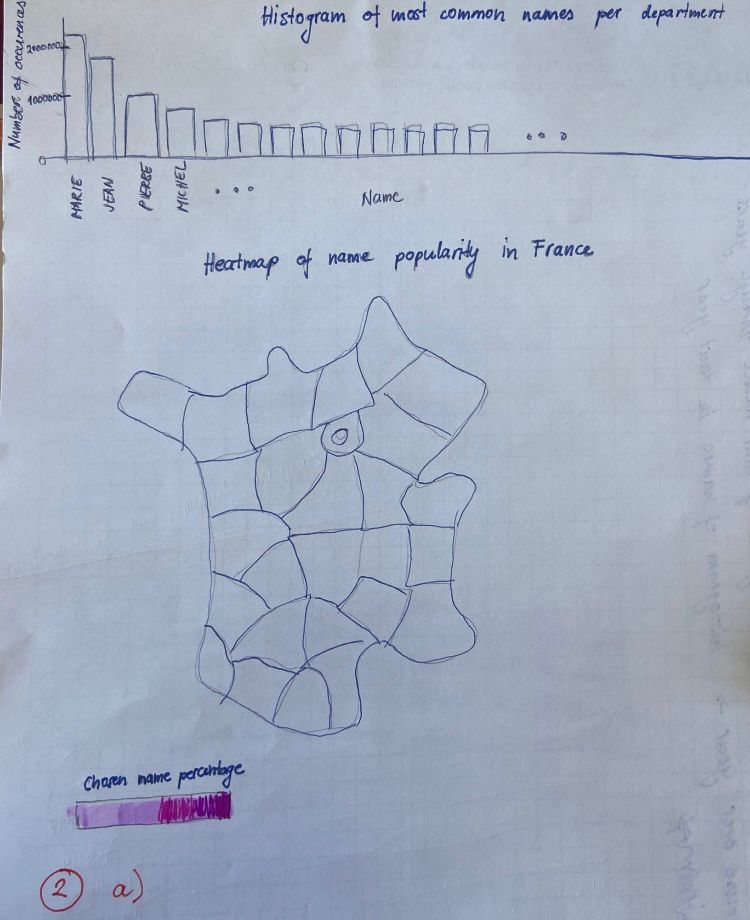 Histogram of most common names per department
Number of occurences
2000000
1000000
0
MARIE
JEAN
PIERRE
MICHEL
...
...
Name
Heatmap of name popularity in France
Chosen name percentage
2 a)